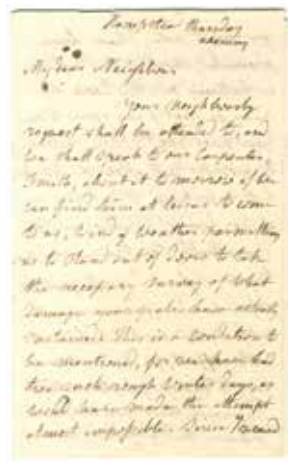 Hampstead Thursday
evening
My dear Neighbour
Your neighbourly
request shall be attended to, and
we shall speak to our Carpenter,
Smith, about it tomorrow if he
can find time at leisure to come
to us, Wind & Weather permitting
us to stand out of doors to take
the necessary survey of what
damage your pales have actually
sustained. This is a condition to
be mentioned, for we have had
two such rough winter days, as
would have made the attempt
almost impossible. Since I received